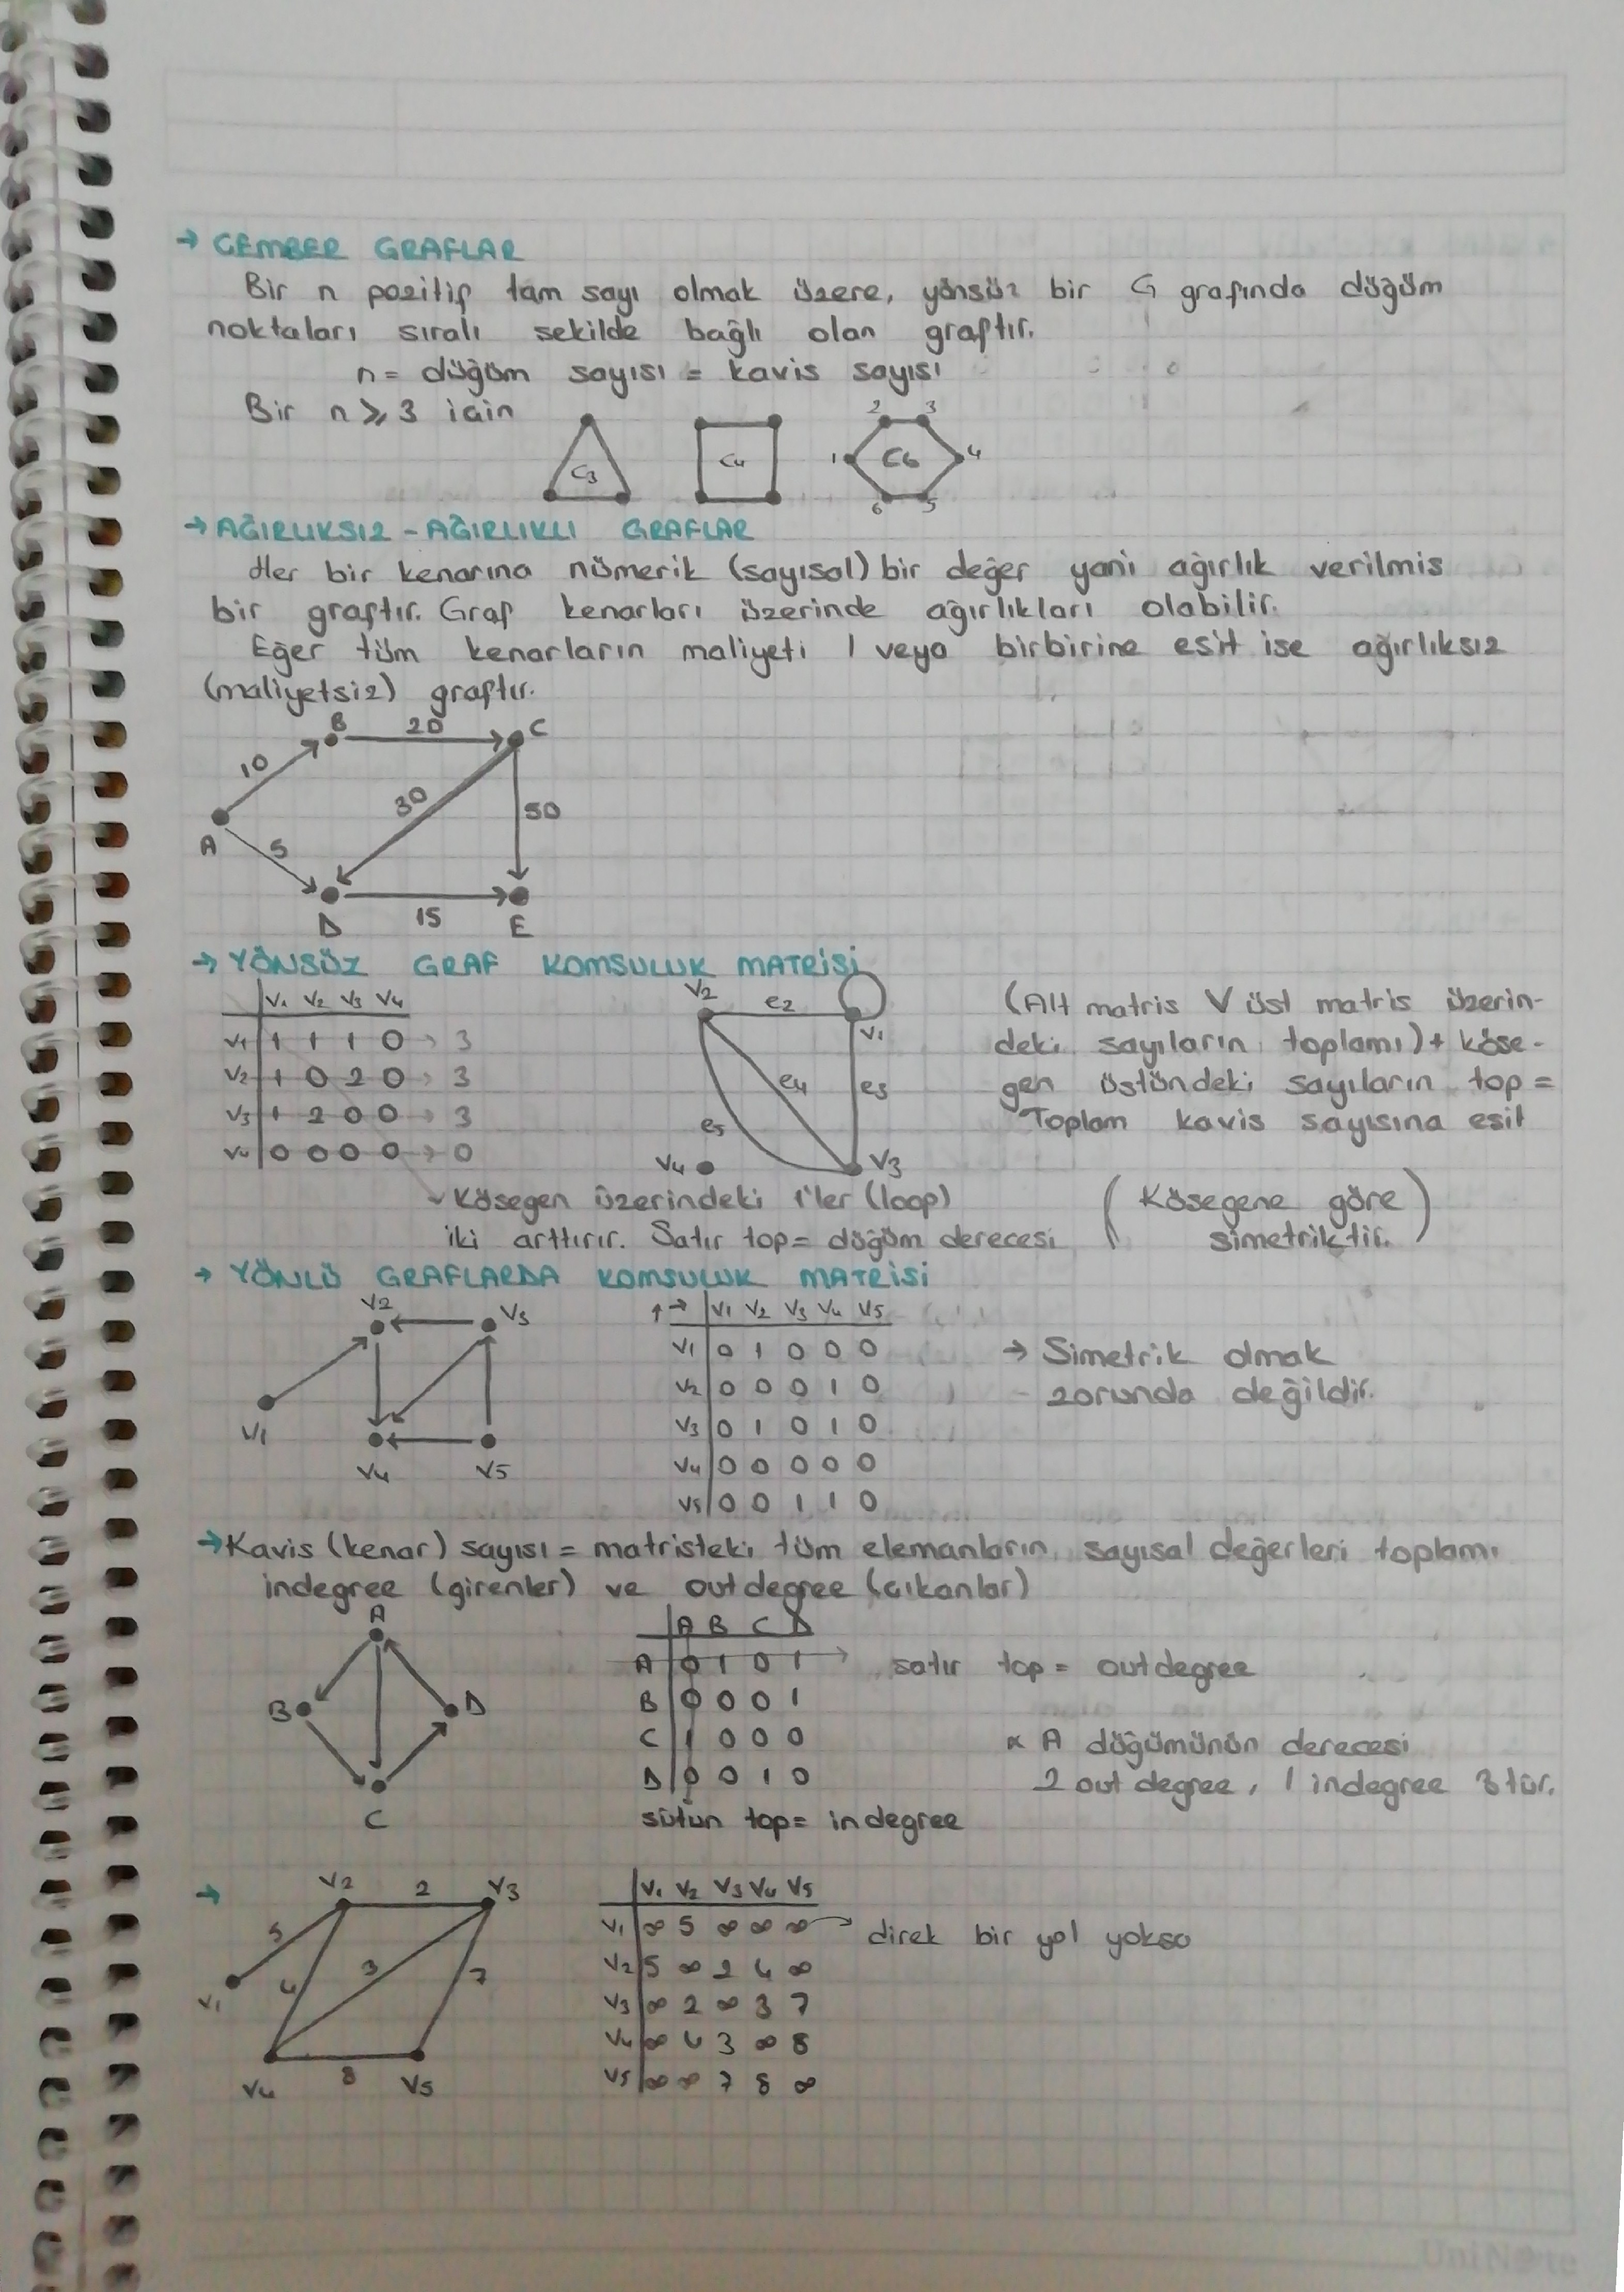 → CEMBER GRAFLAR
Bir n pozitif tam sayı olmak üzere, yönsüz bir G grafında düğüm
noktaları sıralı sekilde bağlı olan graftır.
n = düğüm sayısı = kavis sayısı
Bir n ≥ 3 icin
C3 C4 1 2 3 C6 4 5 6
→ AĞIRLIKSIZ - AĞIRLIKLI GRAFLAR
Her bir kenarına nümerik (sayısal) bir değer yani ağırlık verilmis
bir graftır. Graf kenarları üzerinde ağırlıkları olabilir.
Eğer tüm kenarların maliyeti 1 veya birbirine esit ise ağırlıksız
(maliyetsiz) graftır.
B 20 C
10 30 50
A 5
D 15 E
→ YÖNSÜZ GRAF KOMSULUK MATRİSİ
V1 V2 V3 V4
V1 1 1 1 0 → 3
V2 1 0 2 0 → 3
V3 1 2 0 0 → 3
V4 0 0 0 0 → 0
V2 e2 V1
e4 e3
e5
V4 V3
(Alt matris V üst matris üzerin-
deki sayıların toplamı) + köse-
gen üstündeki sayıların top =
Toplam kavis sayısına esit
Kösegen üzerindeki 1'ler (loop)
iki arttırır. Satır top = düğüm derecesi
(Kösegene göre
simetriktir.)
→ YÖNLÜ GRAFLARDA KOMSULUK MATRİSİ
V2 V3
V1
V4 V5
↑→ V1 V2 V3 V4 V5
V1 0 1 0 0 0
V2 0 0 0 1 0
V3 0 1 0 1 0
V4 0 0 0 0 0
V5 0 0 1 1 0
→ Simetrik olmak
zorunda değildir.
→ Kavis (kenar) sayısı = matristeki tüm elemanların sayısal değerleri toplamı
indegree (girenler) ve outdegree (cıkanlar)
A
B D
C
A B C D
A 0 1 0 1 → satır top = outdegree
B 0 0 0 1
C 1 0 0 0
D 0 0 1 0
sütun top = indegree
× A düğümünün derecesi
2 out degree, 1 indegree 3 tür.
→ V2 2 V3
5 4 3 7
V1
V4 8 V5
V1 V2 V3 V4 V5
V1 ∞ 5 ∞ ∞ ∞ → direk bir yol yoksa
V2 5 ∞ 2 4 ∞
V3 ∞ 2 ∞ 3 7
V4 ∞ 4 3 ∞ 8
V5 ∞ ∞ 7 8 ∞
UniNote